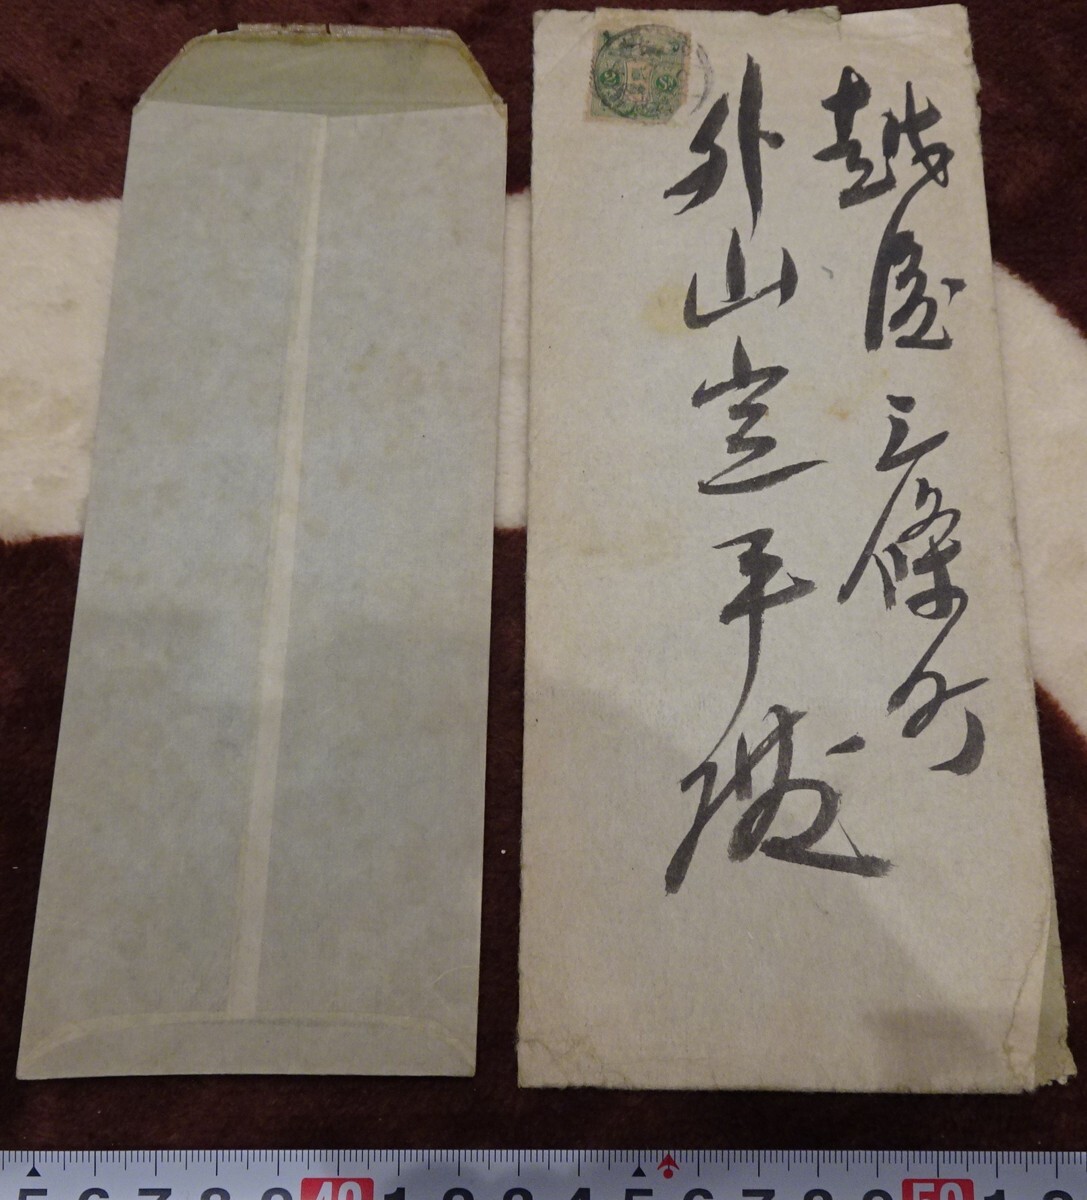 越後三條町
外山平様
5 6 7 8 9 40 1 2 3 4 5 6 7 8 9 50 1